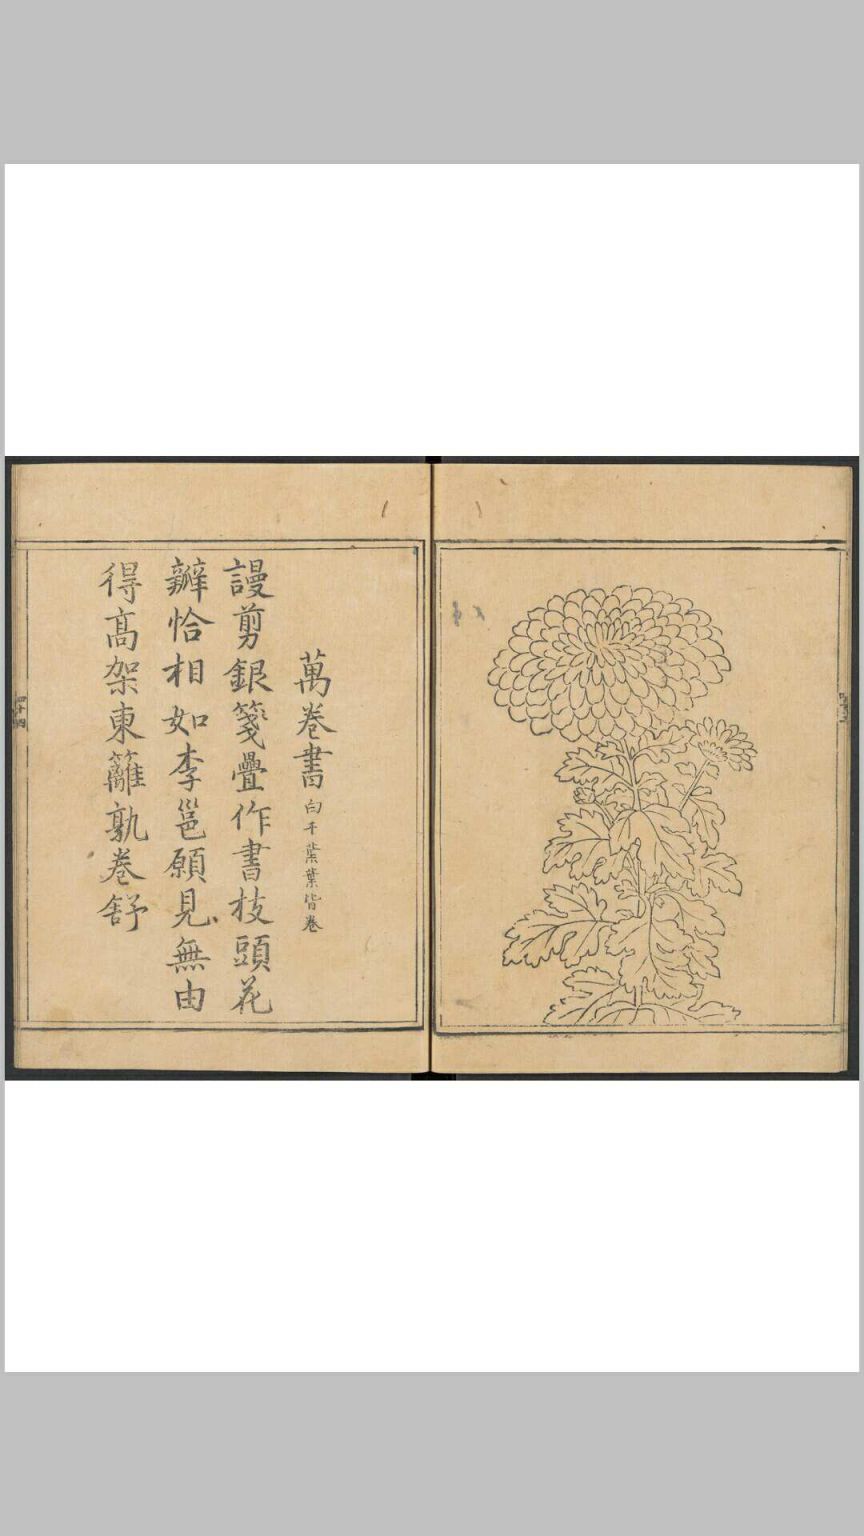 萬卷書 白千葉葉皆卷
謾剪銀箋疊作書枝頭花
瓣恰相如李邕願見無由
得髙架東籬孰卷舒
四十四